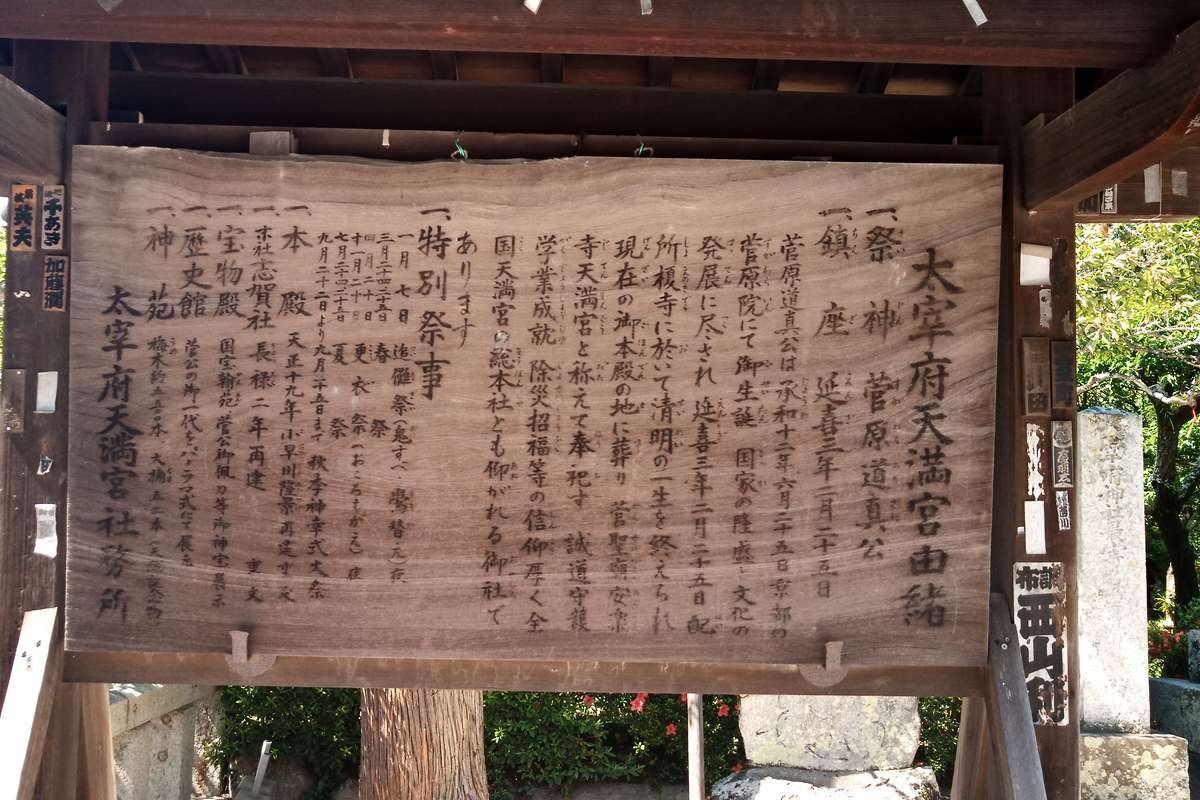 太宰府天満宮由緒
一、祭神 菅原道真公
一、鎮座 延喜三年二月二十五日
菅原道真公は承和十二年六月二十五日京都の
菅原院にて御生誕 国家の隆盛 文化の
発展に尽され 延喜三年二月二十五日 配
所榎寺に於いて清明の一生を終えられ
現在の御本殿の地に葬り 菅聖廟安楽
寺天満宮と称えて奉祀す 誠道守護
学業成就 除災招福等の信仰厚く全
国天満宮の総本社とも仰がれる御社で
あります
一、特別祭事
一月七日 追儺祭(鬼すべ・鷽替え)夜
三月二十四二十五日 春祭
四月二十日 更衣祭(おころもがえ)夜
十一月二十日
七月二十四二十五日 夏祭
九月二十二日より九月二十五日まで 秋季神幸式大祭
一、本殿 天正十九年小早川隆景再建 重文
一、末社志賀社 長禄二年再建 重文
一、宝物殿 国宝翰苑 菅公御佩刀等御神宝展示
一、歴史館 菅公の御一代をパノラマ式にて展示
一、神苑 梅木約五千本 大樟五十本
太宰府天満宮社務所
千あき
英夫
加藤潤
西山